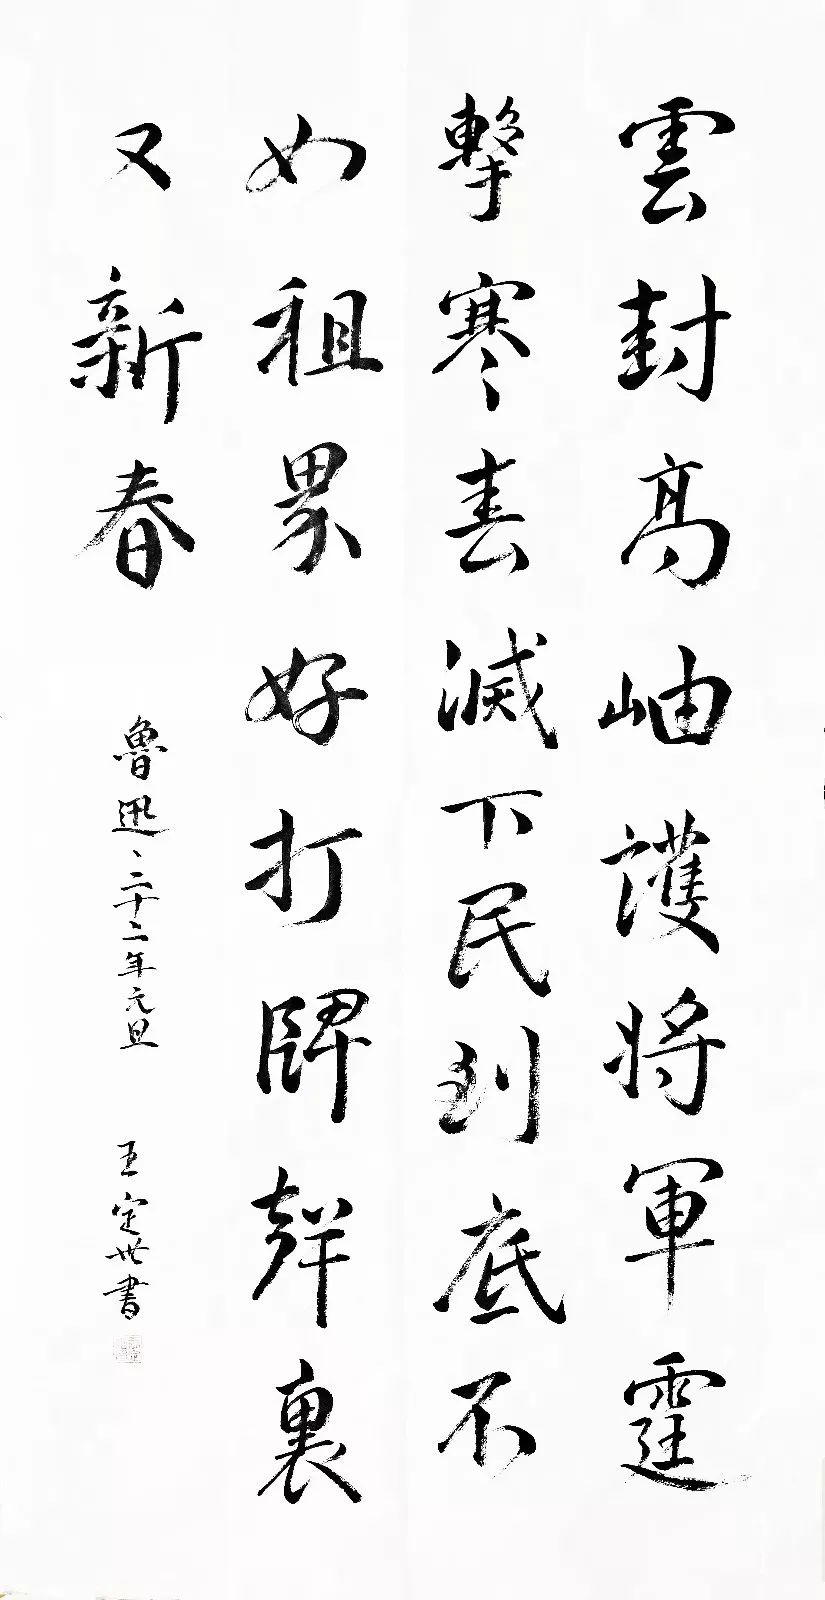 雲封高岫護將軍霆
擊寒滅下民到底不
如租界好打牌聲裏
又新春
魯迅、二十二年元旦
王定世書